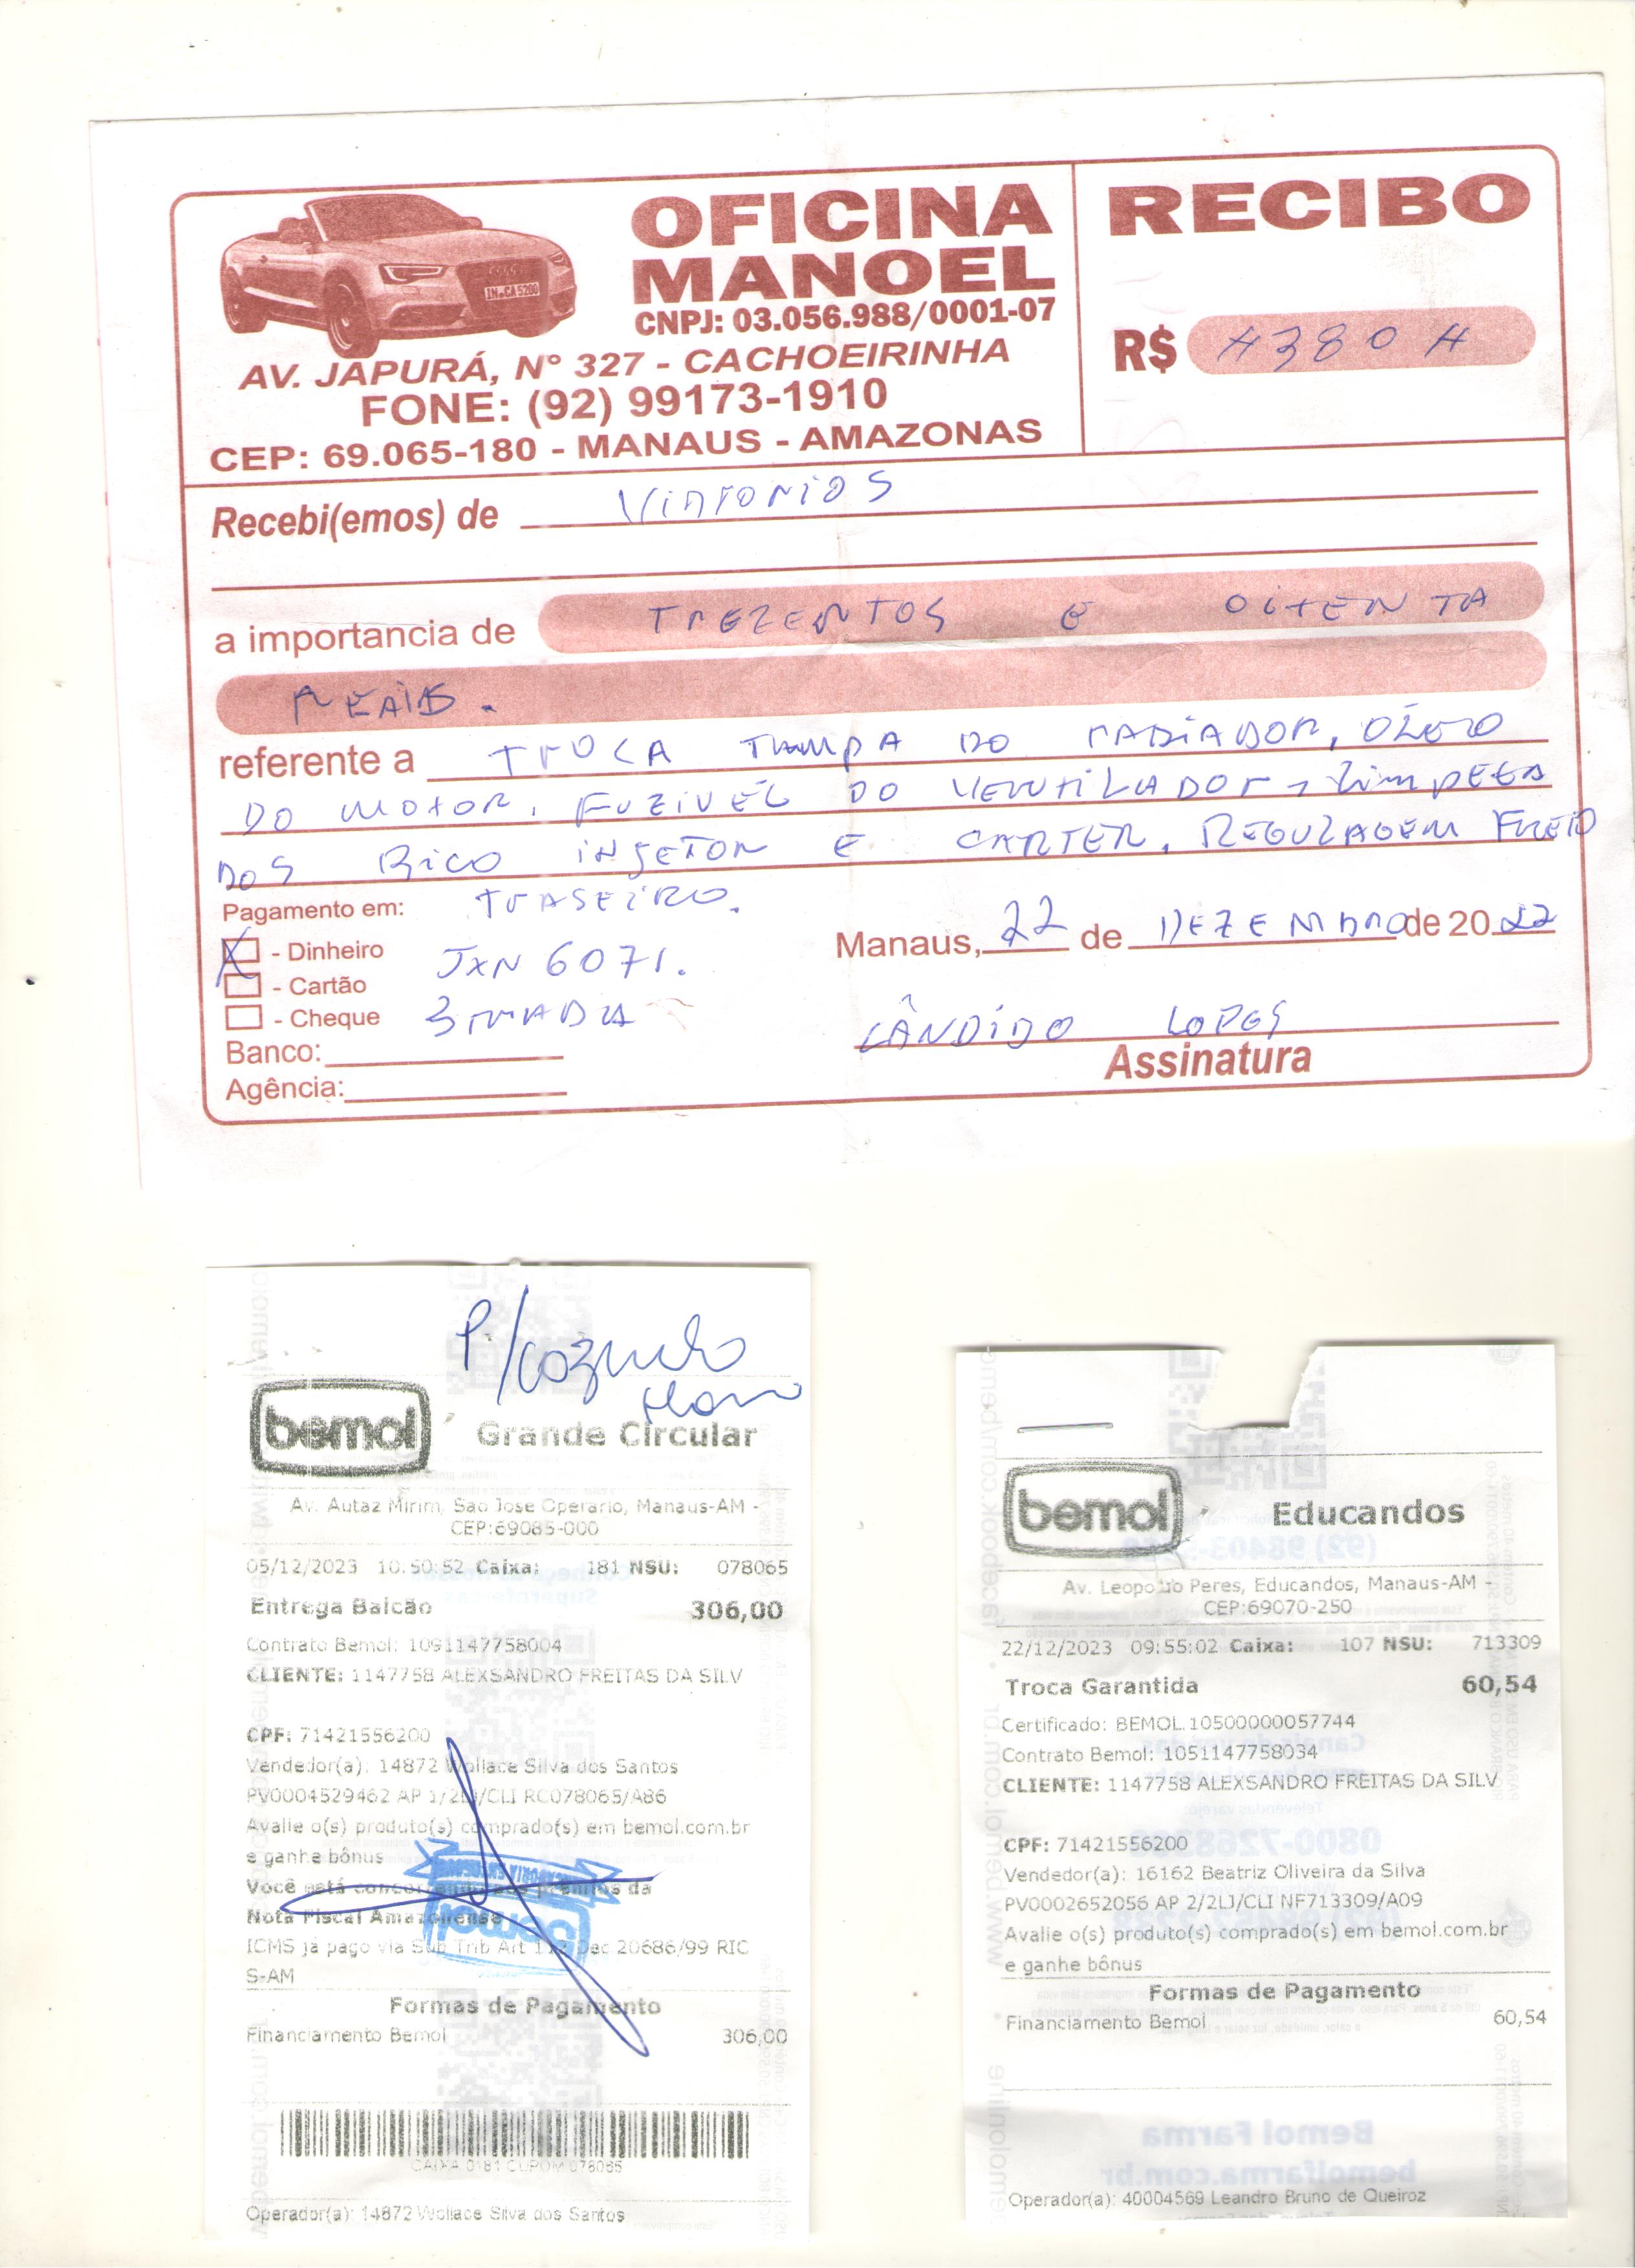 OFICINA
MANOEL
CNPJ: 03.056.988/0001-07
AV. JAPURÁ, N° 327 - CACHOEIRINHA
FONE: (92) 99173-1910
CEP: 69.065-180 - MANAUS - AMAZONAS
RECIBO
R$ #380#
Recebi(emos) de
a importancia de TREZENTOS E OITENTA
REAIS.
referente a TROCA TAMPA DO RADIADOR, OLEO
DO MOTOR, FUZIVEL DO VENTILADOR, LIMPEZA
DOS BICO INJETOR E CARTER. REGULAGEM FREIO
TRASEIRO.
Pagamento em:
X - Dinheiro
- Cartão
- Cheque
JXN 6071.
Banco:
Agência:
Manaus, 22 de DEZEMBRO de 2022
CÂNDIDO LOPES
Assinatura
P./
bemol Grande Circular
Av. Autaz Mirim, Sao Jose Operario, Manaus-AM -
CEP:69085-000
05/12/2023 10:50:52 Caixa: 181 NSU: 078065
Entrega Balcão 306,00
Contrato Bemol: 1091147758004
CLIENTE: 1147758 ALEXSANDRO FREITAS DA SILV
CPF: 71421556200
Vendedor(a): 14872 Wollace Silva dos Santos
PV0004529462 AP 1/2LJ/CLI RC078065/A86
Avalie o(s) produto(s) comprado(s) em bemol.com.br
e ganhe bônus
Você está concorrendo aos prêmios da
Nota Fiscal Amazonense
ICMS ja pago via Sub Trib Art 112 Dec 20686/99 RIC
S-AM
Formas de Pagamento
Financiamento Bemol 306,00
CAIXA 0181 CUPOM 078065
Operador(a): 14872 Wollace Silva dos Santos
bemol Educandos
Av. Leopoldo Peres, Educandos, Manaus-AM -
CEP:69070-250
22/12/2023 09:55:02 Caixa: 107 NSU: 713309
Troca Garantida 60,54
Certificado: BEMOL.10500000057744
Contrato Bemol: 1051147758034
CLIENTE: 1147758 ALEXSANDRO FREITAS DA SILV
CPF: 71421556200
Vendedor(a): 16162 Beatriz Oliveira da Silva
PV0002652056 AP 2/2LJ/CLI NF713309/A09
Avalie o(s) produto(s) comprado(s) em bemol.com.br
e ganhe bônus
Formas de Pagamento
Financiamento Bemol 60,54
Operador(a): 40004569 Leandro Bruno de Queiroz